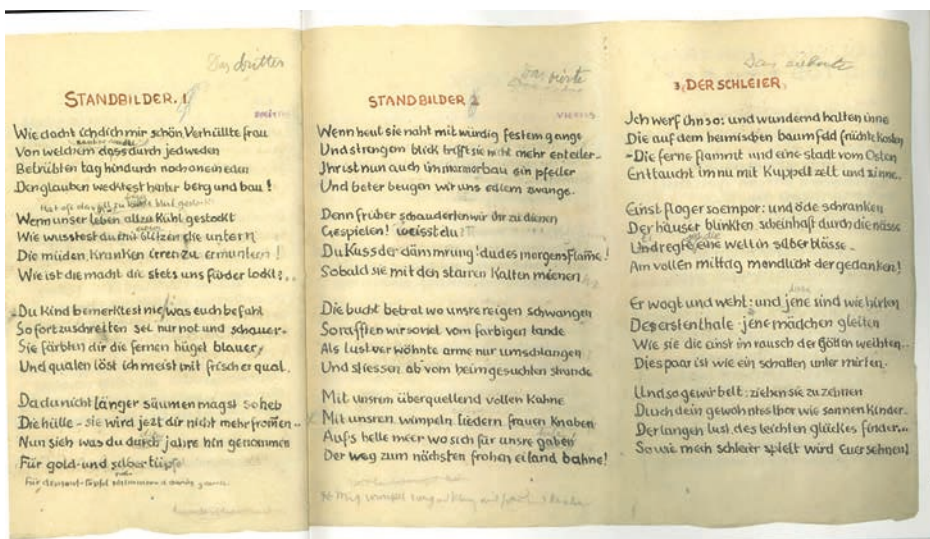 Das dritte
STANDBILDER. 1
Wie dacht ich dich mir schön Verhüllte frau
Von welchem dass durch jedweden
Betrübten tag hindurch noch an einen
Den glauben wecktest hinter berg und bau!
Wenn unser leben allzu Kühl gestockt
Wie wusstest du mit Glitzen die untern
Die müden, Kranken irren zu ermuntern!
Wie ist die macht die stets uns fürder lockt?..
-Du Kind bemerktest nie, was euch befahl
So fortzuschreiten sei nur not und schauer-
Sie färbten dir die fernen hügel blauer,
Und qualen löst ich meist mit frischer qual.
Da du nicht länger säumen magst so heb
Die hülle - sie wird jezt dir nicht mehr frommen..
Nun sieh was du durch jahre hin genommen
Für gold- und silbertüpfel
Das vierte
STANDBILDER 2
VIERTES
Wenn heut sie naht mit würdig festem gange
Und strengem blick trifft sie nicht mehr enteiler-
Ihr ist nun auch im marmorbau ein pfeiler
Und beter beugen wir uns edlem zwange.
Denn früher schauderten wir ihr zu dienen
Gespielen! weisst du?
Du Kuss der dämmrung! du des morgens flamme!
Sobald sie mit den starren Kalten mienen
Die bucht betrat wo uns reigen schwangen
So rafften wir soviel vom farbigen tande
Als lustverwöhnte arme nur umschlangen
Und stiessen ab vom heimgesuchten strande
Mit unsrem überquellend vollen Kahne
Mit unsren wimpeln liedern frauen Knaben
Aufs helle meer wo sich für unsre gaben
Der weg zum nächsten frohen eiland bahne!
Das siebente
3, DER SCHLEIER,
Ich werf ihn so: und wundernd halten inne
Die auf dem heimischen baumfeld früchte Kosten
-Die ferne flammt und eine stadt vom Osten
Enttaucht im nu mit Kuppel zelt und zinne..
Einst flog er so empor: und öde schranken
Der häuser blinkten scheinhaft durch die nässe
Und regte, eine welt in silberblässe-
Am vollen mittag mondlicht der gedanken!
Er wogt und weht: und jene sind wie hirten
Des ersten thale · jene mädchen gleiten
Wie sie die einst im rausch der Götten weihten..
Dies paar ist wie ein schatten unter mirten.
Und so gewirbelt: ziehen sie zu zehnen
Durch dein gewohntes thor wie sonnen Kinder-
Der langen lust, des leichten glückes finder...
So wie mein schleier spielt wird Euer sehnen!